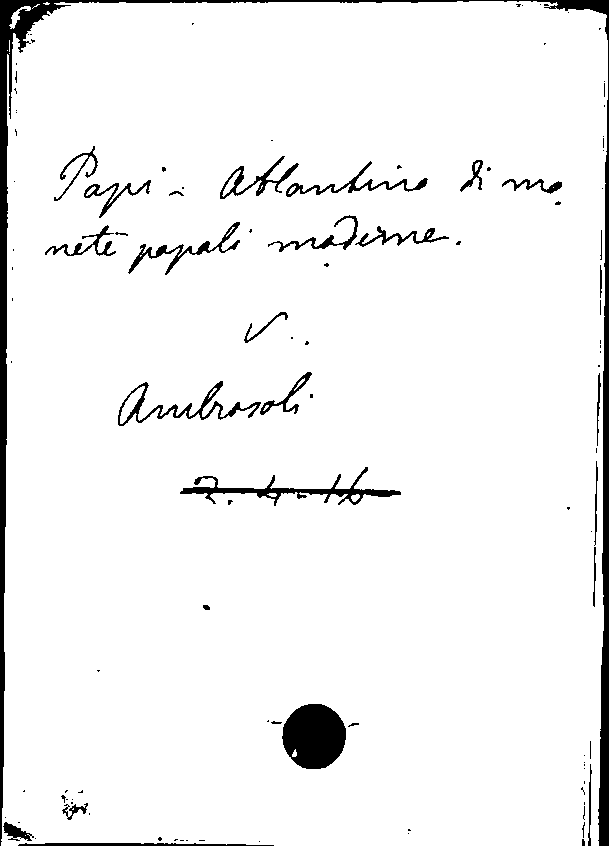 Papi - Atlantino di mo-
nete papali moderne.
V.
Ambrosoli
2. 4 - 16